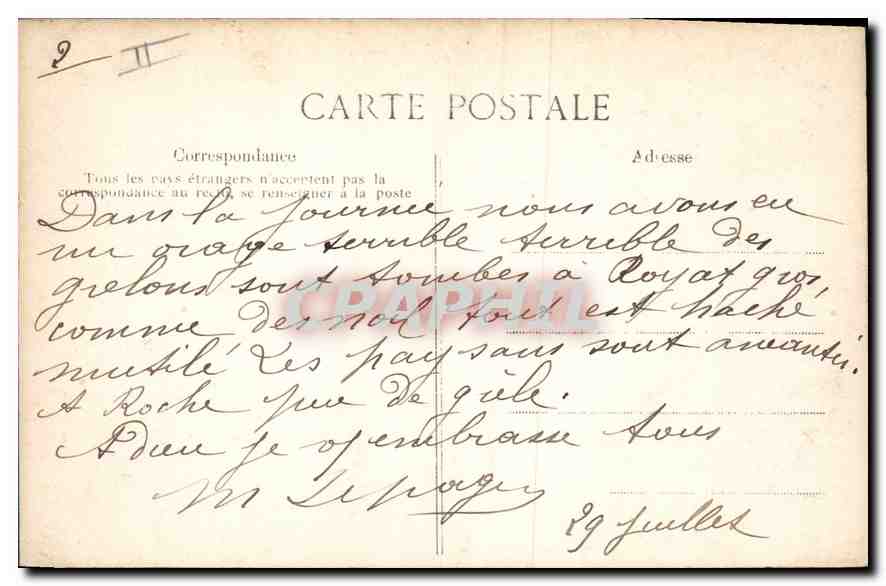 2 II
CARTE POSTALE
Correspondance
Adresse
Tous les pays étrangers n'acceptent pas la
correspondance au recto, se renseigner à la poste
Dans la journée nous avons eu
un orage terrible terrible des
grelons sont tombés à Royat gros,
comme des noix tout est haché
mutilé Les paysans sont anéantis.
A Roche peu de grèle.
Adieu je vs embrasse tous
M Lepage
29 Juillet
CPAPHIL